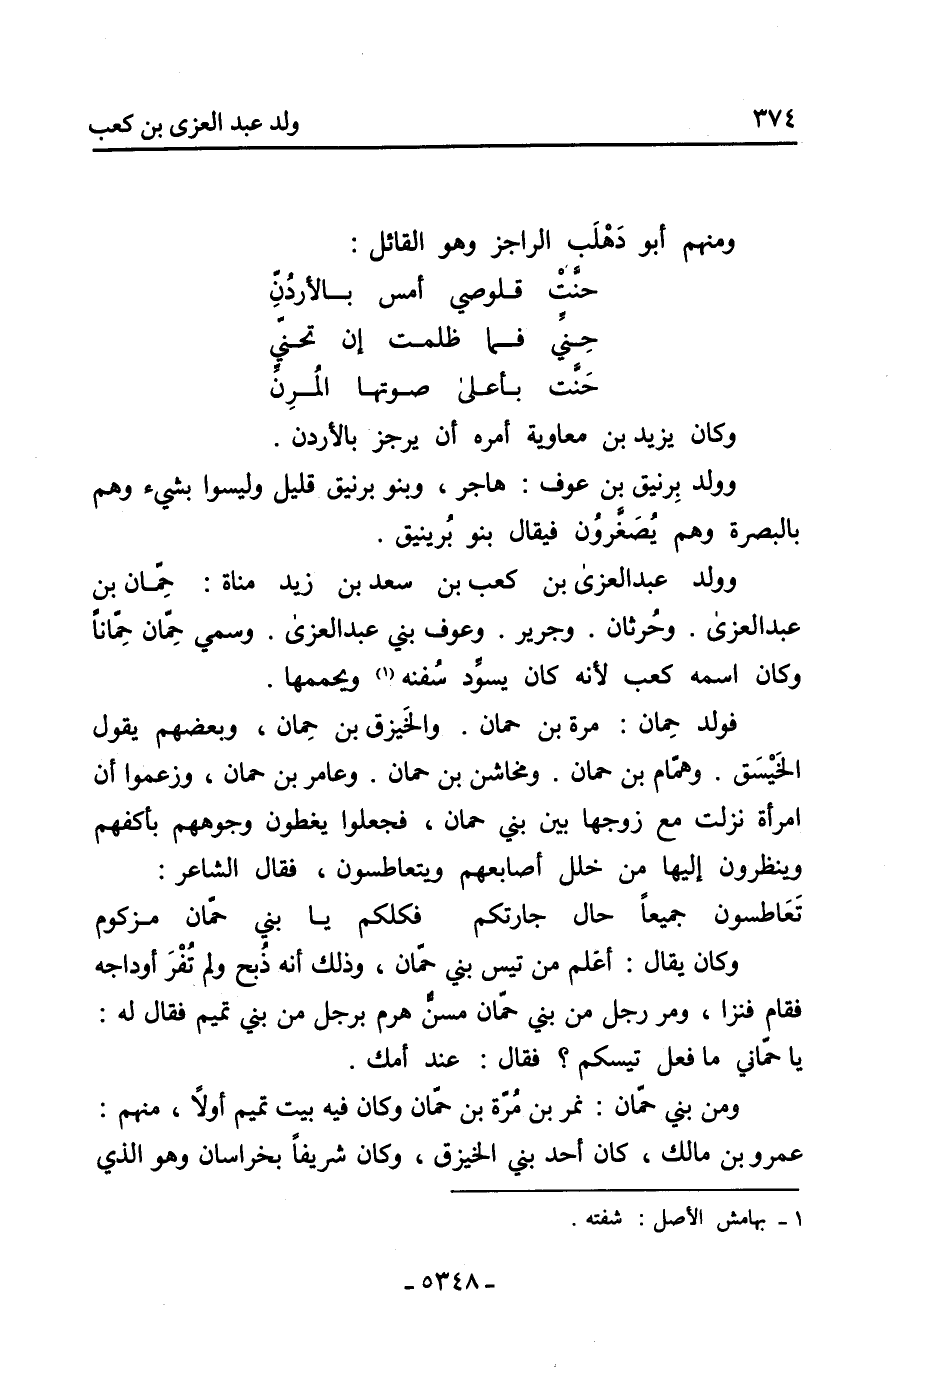 ٣٧٤ ولد عبد العزى بن كعب
ومنهم أبو دَهْلَب الراجز وهو القائل :
حنَّتْ قلوصي أمس بالأردُنِّ
حِنيِّ فما ظلمت إن تحنيِّ
حَنَّت بأعلىٰ صوتها المُرِنِّ
وكان يزيد بن معاوية أمره أن يرجز بالأردن .
وولد بِرنيق بن عوف : هاجر ، وبنو برنيق قليل وليسوا بشيء وهم
بالبصرة وهم يُصَغَّروُن فيقال بنو بُرينيق .
وولد عبدالعزىٰ بن كعب بن سعد بن زيد مناة : حِمّان بن
عبدالعزىٰ . وحُرثان . وجرير . وعوف بني عبدالعزىٰ . وسمي حِمّان حِمّاناً
وكان اسمه كعب لأنه كان يسوِّد سُفنه (١) ويحممها .
فولد حِمان : مرة بن حمان . والخَيزق بن حِمان ، وبعضهم يقول
الخَيْسَق . وهمّام بن حمان . ومخاشن بن حمان . وعامر بن حمان ، وزعموا أن
امرأة نزلت مع زوجها بين بني حمان ، فجعلوا يغطون وجوههم بأكفهم
وينظرون إليها من خلل أصابعهم ويتعاطسون ، فقال الشاعر :
تَعَاطسون جميعاً حال جارتكم فكلكم يا بني حمّان مزكوم
وكان يقال : أغلم من تيس بني حمّان ، وذلك أنه ذُبح ولم تُفْرَ أوداجه
فقام فنزا ، ومر رجل من بني حمّان مسنٌّ هرم برجل من بني تميم فقال له :
يا حمّاني ما فعل تيسكم ؟ فقال : عند أمك .
ومن بني حمّان : نمر بن مُرّة بن حمّان وكان فيه بيت تميم أولاً ، منهم :
عمرو بن مالك ، كان أحد بني الخيزق ، وكان شريفاً بخراسان وهو الذي
١ ـ بهامش الأصل : شفته .
ـ ٥٣٤٨ ـ